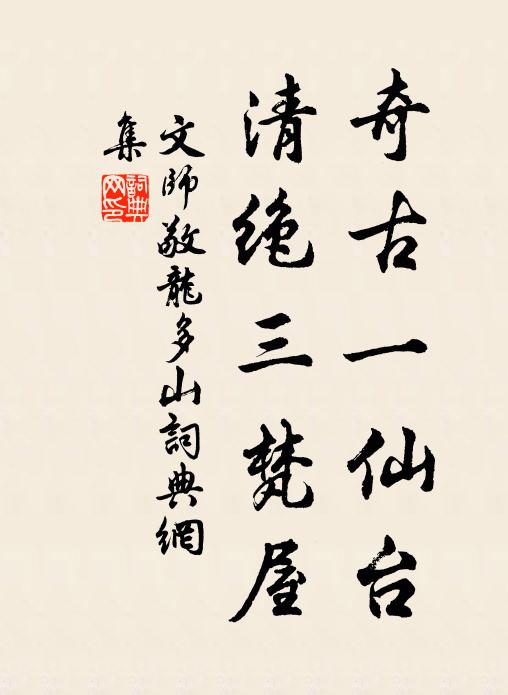 奇古一仙台
清绝三梵屋
文師敬龍多山詞典網
集
詞典
网印